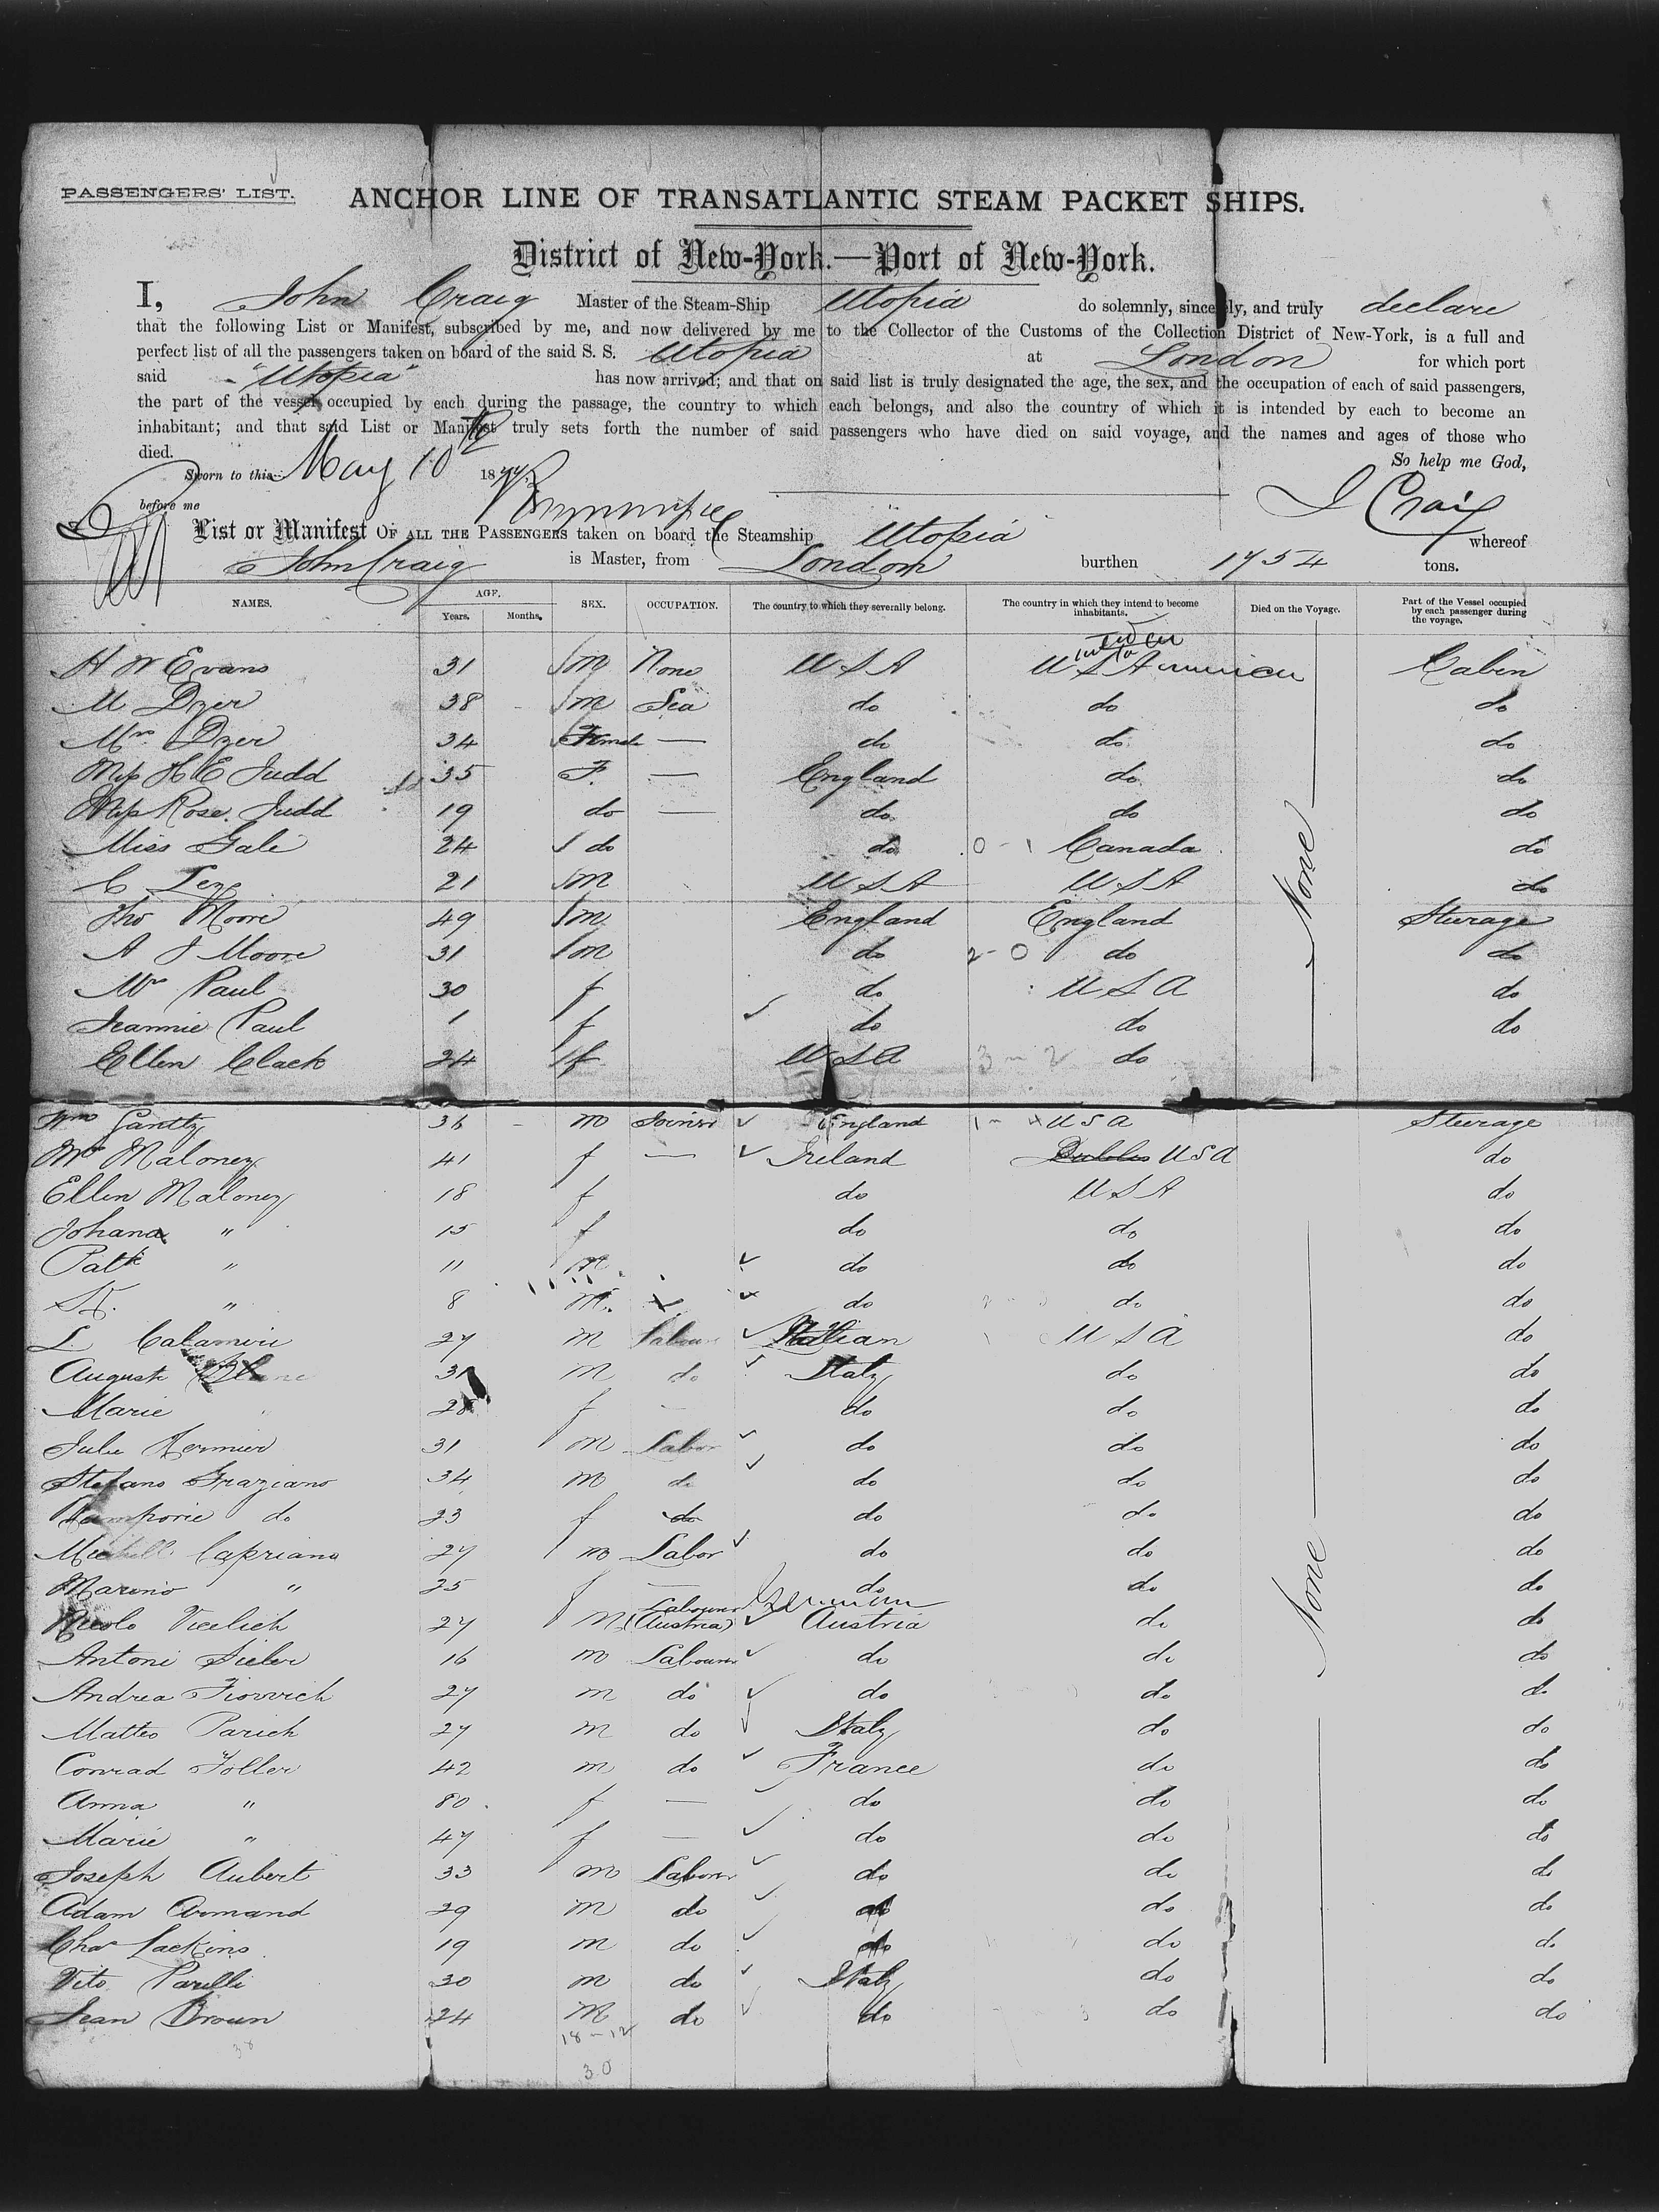 PASSENGERS' LIST. ANCHOR LINE OF TRANSATLANTIC STEAM PACKET SHIPS.
District of New-York.—Port of New-York.
I, John Craig Master of the Steam-Ship Utopia do solemnly, sincerely, and truly declare
that the following List or Manifest, subscribed by me, and now delivered by me to the Collector of the Customs of the Collection District of New-York, is a full and
perfect list of all the passengers taken on board of the said S. S. Utopia at London for which port
said "Utopia" has now arrived; and that on said list is truly designated the age, the sex, and the occupation of each of said passengers,
the part of the vessel occupied by each during the passage, the country to which each belongs, and also the country of which it is intended by each to become an
inhabitant; and that said List or Manifest truly sets forth the number of said passengers who have died on said voyage, and the names and ages of those who
died. So help me God,
Sworn to this May 10 1877
before me J Craig
List or Manifest OF ALL THE PASSENGERS taken on board the Steamship Utopia whereof
John Craig is Master, from London burthen 1754 tons.
NAMES. AGE. Years. Months. SEX. OCCUPATION. The country to which they severally belong. The country in which they intend to become inhabitants. Died on the Voyage. Part of the Vessel occupied by each passenger during the voyage.
H W Evans 31 m None U S A U S America Cabin
M Dyer 38 m Sea do do do
Mrs Dyer 34 Female — do do do
Miss H E Judd 35 F. — England do do
Miss Rose Judd 19 do — do do do
Miss Gale 24 do do Canada do
C 21 m U S A U S A do
Thos Moore 49 m England England Steerage
A J Moore 31 m do 2-0 do do
Mrs Paul 30 f do U S A do
Jeannie Paul 1 f do do do
Ellen Clack 24 f U S A 3-2 do
None
Wm Gantly 36 m Joiner England U S A Steerage
Mrs Maloney 41 f — Ireland U S A do
Ellen Maloney 18 f do U S A do
Johana " 15 f do do do
Patk " 11 m do do do
" 8 m do do do
L. 27 m Labour Italian U S A do
August 31 m do Italy do do
Marie 28 f — do do do
Julie 31 m Labor do do do
Stefano Graziano 34 m do do do do
do 23 f do do do do
Capriano 27 m Labor do do do
Marino " 25 f — do do do
German
Nicolo 27 m Labourer (Austria) Austria do do
Antoni Sieler 16 m Labourer do do do
Andrea 27 m do do do do
Matteo Parich 27 m do Italy do do
Conrad Foller 42 m do France do do
Anna " 80 f — do do do
Marie " 47 f — do do do
Joseph Aubert 33 m Labour do do do
Adam Armand 29 m do do do do
Chas Lackins 19 m do do do do
Vito Parelli 30 m do Italy do do
Jean Broun 24 m do do do do
None
18-12
30